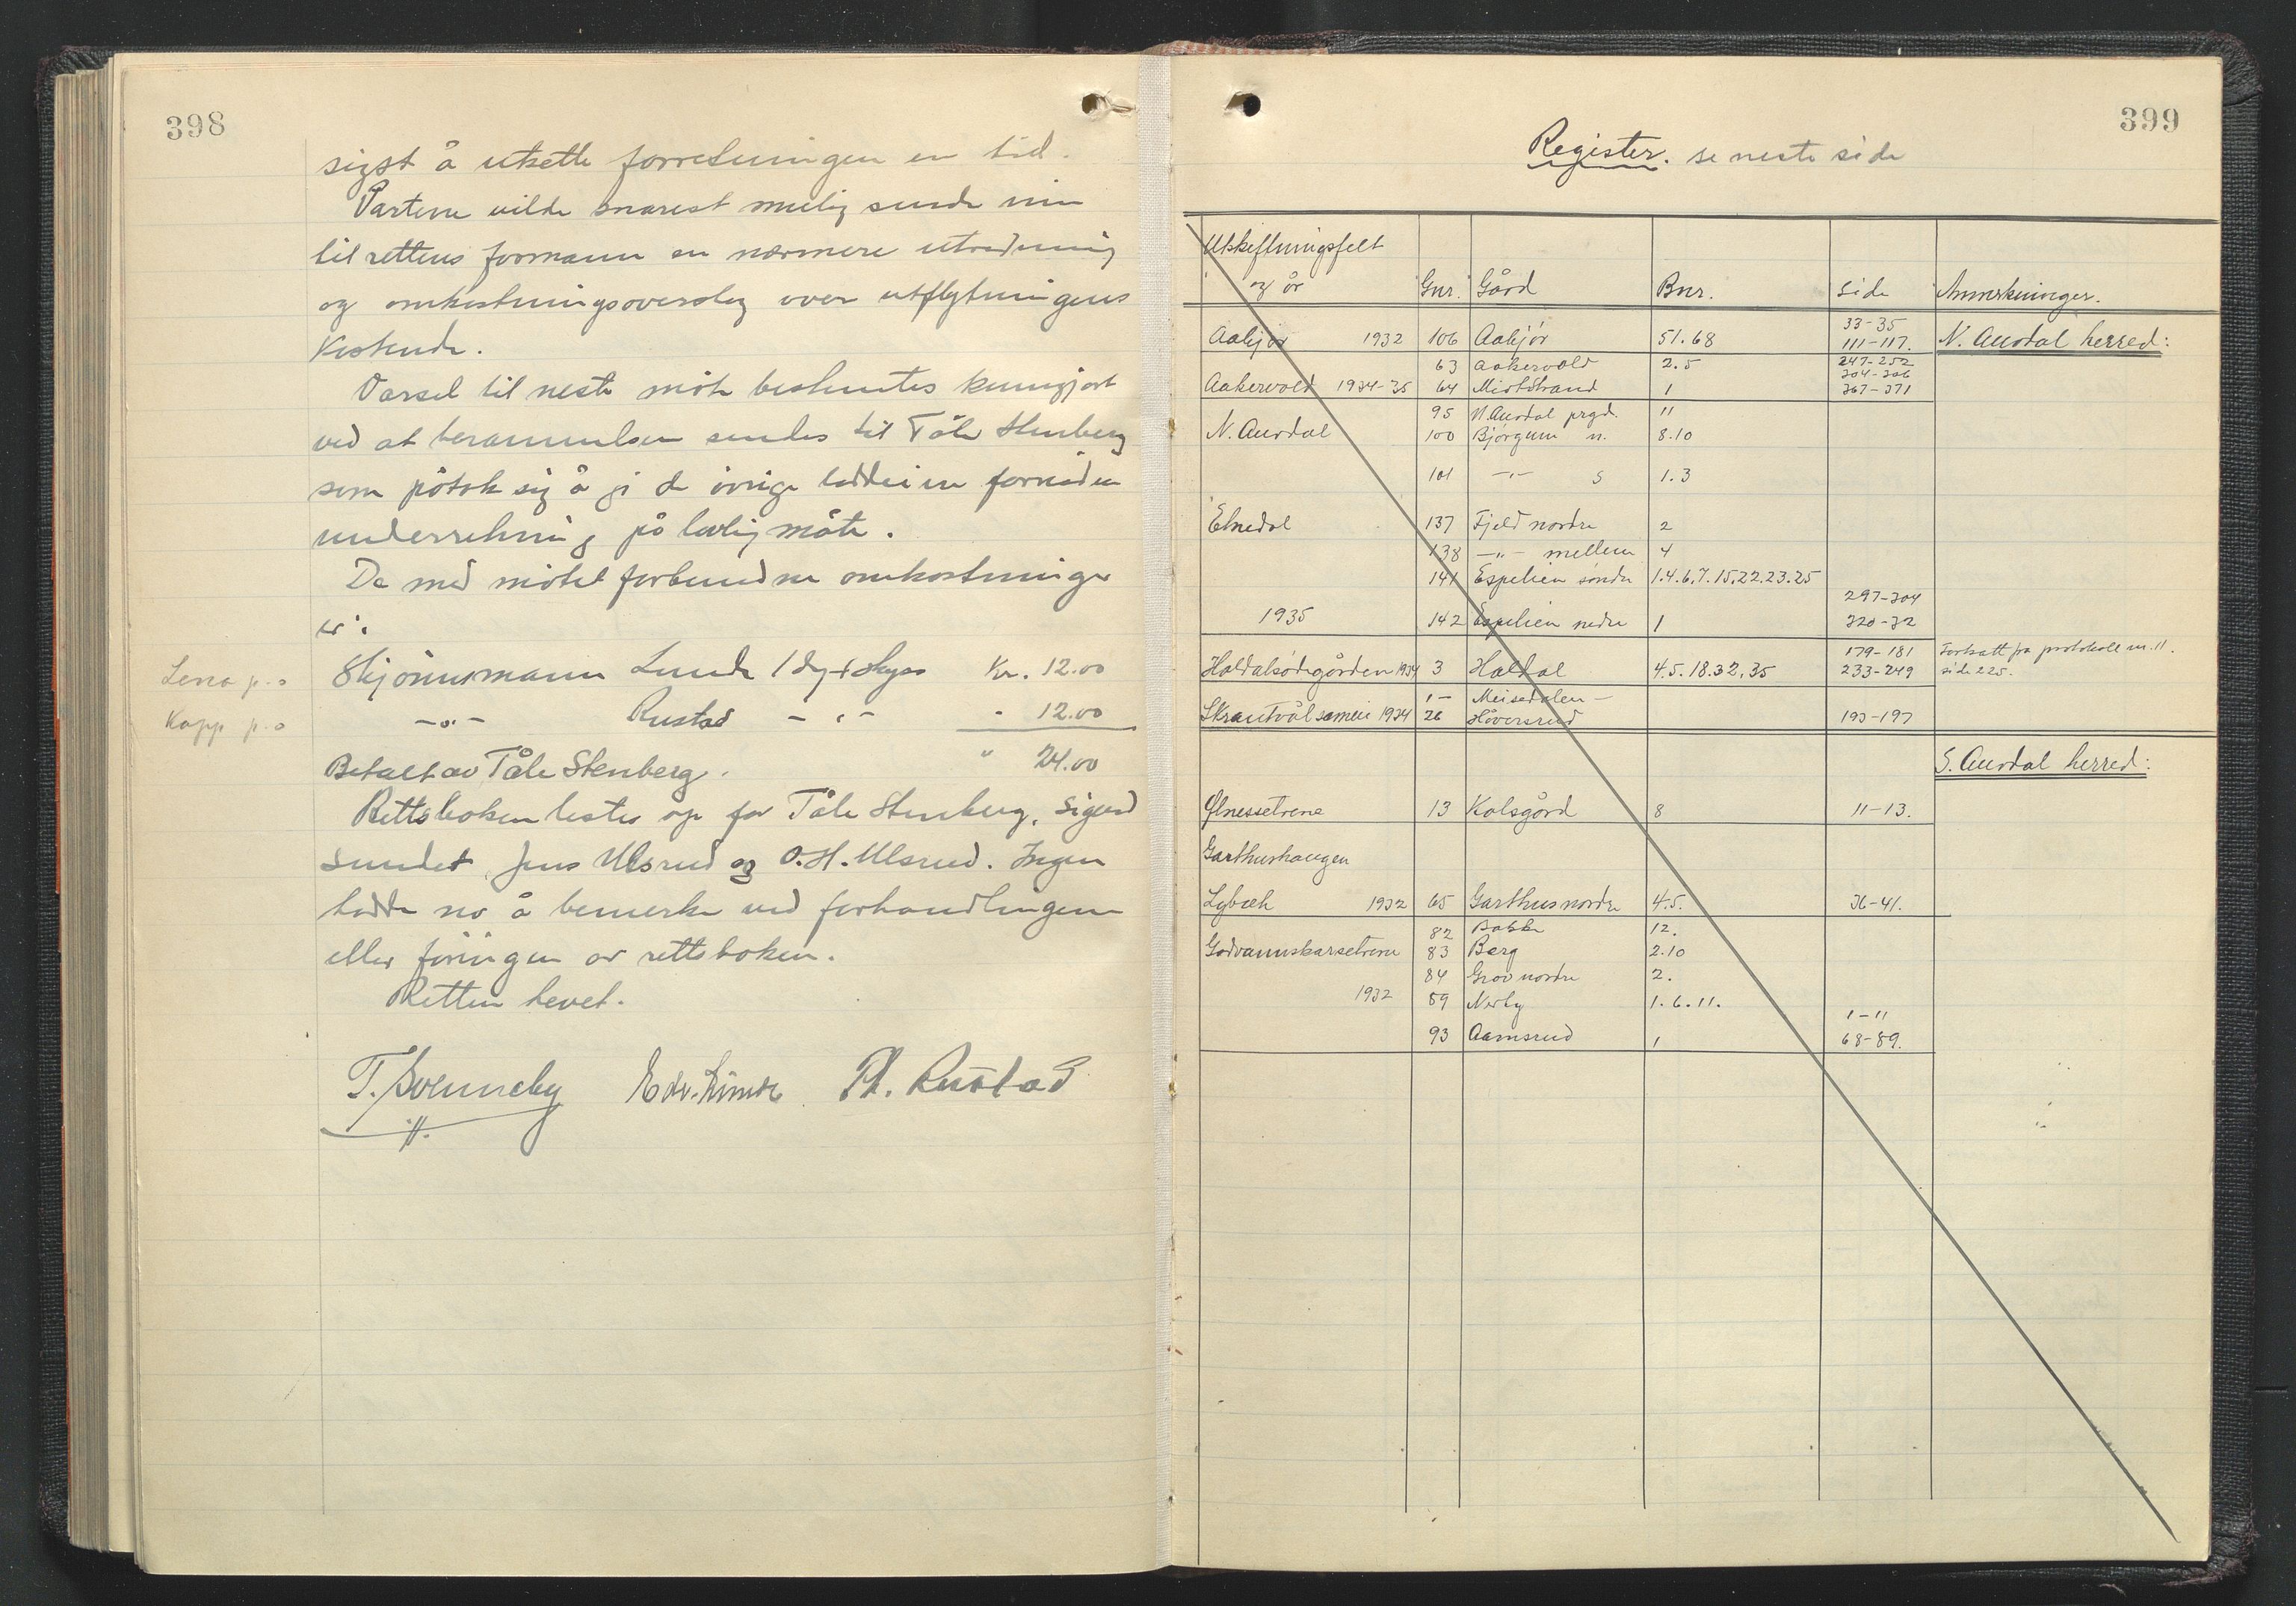 398
sigst å utsette forretningen en tid.
Partene vilde snarest mulig sende inn
til rettens formann en nærmere utredning
og omkostningsoverslag over utflytningens
kostende.
Varsel til neste møte besluttes kunngjort
ved at berammelsen sendes til Tåle Stenberg
som påtok sig å gi de øvrige loddeiere fornøden
underretning på lovlig måte.
De med møtet forbundne omkostninger
er:
Lena p.o Skjønnsmann Lunde 1 dag + skyss Kr. 12.00
Kapp p.o -"- Rustad - " - - 12.00
" 24.00
Betalt av Tåle Stenberg.
Rettsboken lestes op for Tåle Stenberg, Sigurd
Sundet, Jens Ulsrud og O.H. Ulsrud. Ingen
hadde no å bemerke ved forhandlingene
eller føringen av rettsboken.
Retten hevet.
T. Svenneby Edv. Lunde Pl. Rustad
399
Register. se neste side
Utskiftningsfelt
og år Gnr. Gård Bnr. Side Anmerkninger.
33-35
Aabjør 1932 106 Aabjør 51.68 111-117. N. Aurdal herred:
63 Aakervold 2.5 247-252
304-306
Aakervold 1934-35 64 Midtstrand 1 367-371
95 N. Aurdal prgd. 11
N. Aurdal 100 Bjørgum n. 8.10
101 -"- s 1.3
Etnedal 137 Fjeld nordre 2
138 -"- mellem 4
141 Espelien søndre 1.4.6.7.15.22.23.25
297-304
1935 142 Espelien nedre 1 320-32
179-181 Fortsatt fra protokoll nr. 11.
Haldalsødegården 1934 3 Haldal 4.5.18.32.35 233-249 side 225.
1- Meisedalen-
Skrautvålsameie 1934 26 Håversrud 193-197
S. Aurdal herred:
Ølnessetrene 13 Kolsgård 8 11-13.
Garthushaugen
Lybæk 1932 65 Garthus nordre 4.5. 36-41.
82 Bakke 12.
Godvannskarsetrene 83 Berg 2.10
84 Grov nordre 2.
1932 89 Nerby 1.6.11.
1-11
93 Aamsrud 1 68-89.